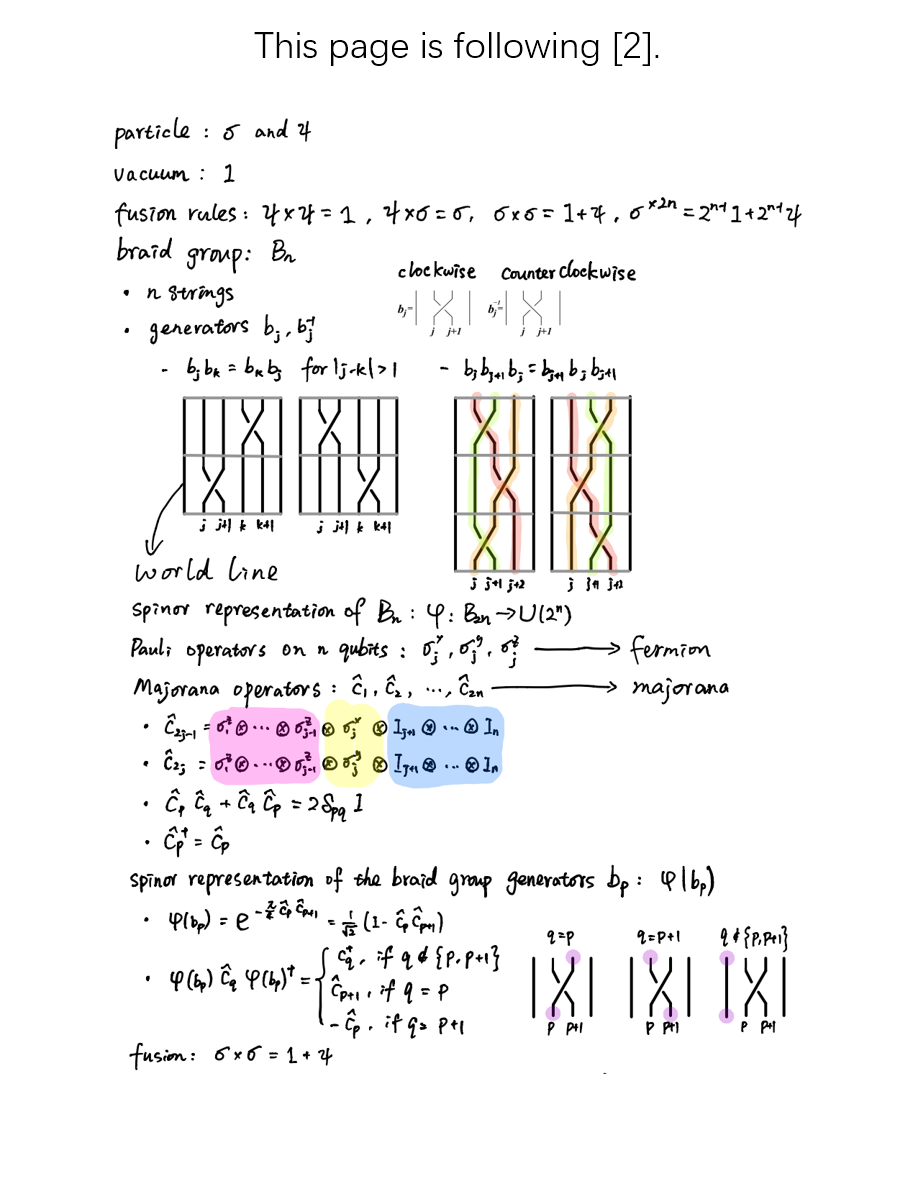 This page is following [2].
particle : σ and ψ
vacuum : 1
fusion rules : ψ×ψ = 1 , ψ×σ = σ, σ×σ = 1+ψ , σ^{×2n} = 2^{n-1} 1 + 2^{n-1} ψ
braid group: Bₙ
clockwise counter clockwise
• n strings
b_j= b_j^{-1}=
j j+1 j j+1
• generators b_j , b_j^{-1}
- b_j b_k = b_k b_j for |j-k|>1 - b_j b_{j+1} b_j = b_{j+1} b_j b_{j+1}
j j+1 k k+1 j j+1 k k+1
j j+1 j+2 j j+1 j+2
world line
spinor representation of Bₙ : φ : B_{2n} → U(2ⁿ)
Pauli operators on n qubits : σ_j^x , σ_j^y , σ_j^z → fermion
Majorana operators : ĉ₁ , ĉ₂ , ⋯, ĉ_{2n} → majorana
• ĉ_{2j-1} = σ₁^z ⊗ ⋯ ⊗ σ_{j-1}^z ⊗ σ_j^x ⊗ I_{j+1} ⊗ ⋯ ⊗ Iₙ
• ĉ_{2j} = σ₁^z ⊗ ⋯ ⊗ σ_{j-1}^z ⊗ σ_j^y ⊗ I_{j+1} ⊗ ⋯ ⊗ Iₙ
• ĉ_p ĉ_q + ĉ_q ĉ_p = 2δ_{pq} I
• ĉ_p^† = ĉ_p
spinor representation of the braid group generators b_p : φ(b_p)
• φ(b_p) = e^{-\frac{π}{4} ĉ_p ĉ_{p+1}} = \frac{1}{√2} (1 - ĉ_p ĉ_{p+1})
q=p q=p+1 q∉{p,p+1}
• φ(b_p) ĉ_q φ(b_p)^† = { c_q^† , if q ∉ {p, p+1}
ĉ_{p+1} , if q = p
-ĉ_p , if q = p+1
p p+1 p p+1 p p+1
fusion: σ×σ = 1+ψ